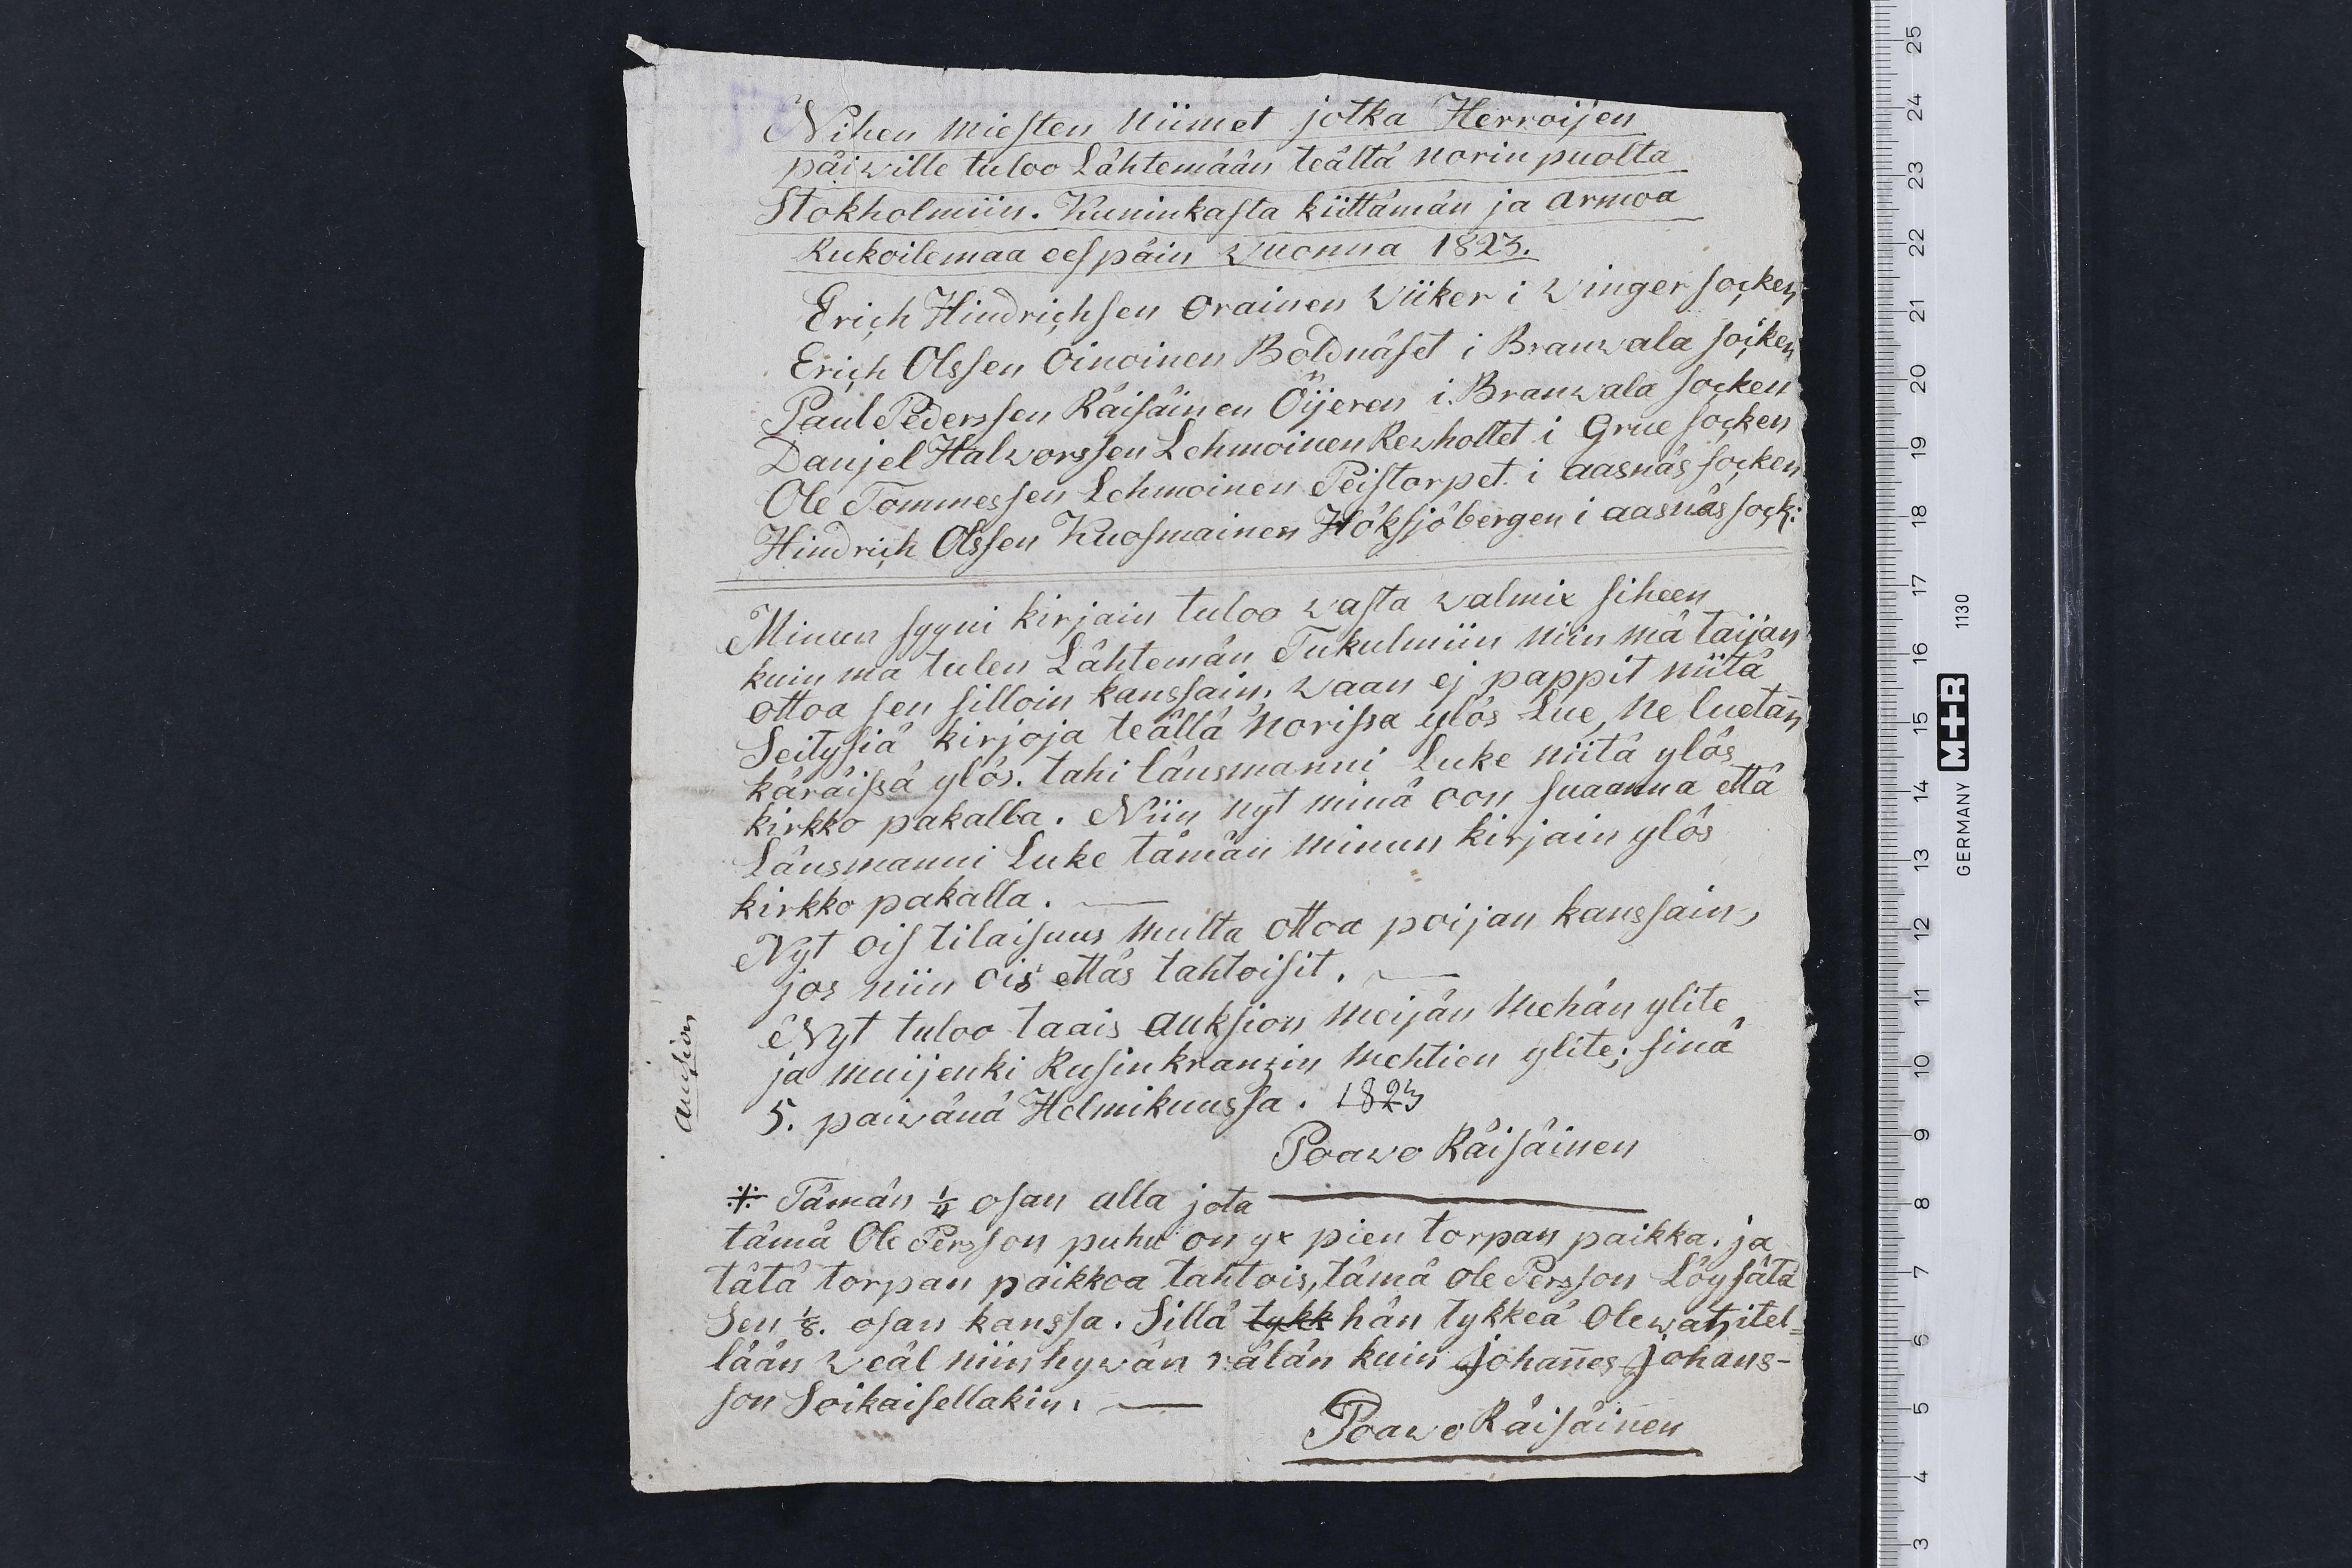 Nihen miesten niimet jotka Herroijen
päiwille tuloo Lähtemään teältä norin puolta
Stokholmiin. Kuninkasta kiittämän ja armoa
Rukoilemaa eespäin wuonna 1823.
Erich Hindrichsen Orainen Wiiker i Winger socken
Erich Olssen Oinoinen Boldnäset i Branwala socken
Paul Pederssen Räisäinen Öijeren i Branwala socken
Danjel Halworssen Lehmoinen Rewholtet i Grue socken
Ole Tommessen Lehmoinen Peistorpet i aasnäs socken
Hindrich Olssen Kuosmainen Höksjöbergen i aasnäs sock:
Minun syyni kirjain tuloo wasta walmix siheen
kuin ma tulen Lähtemän Tukulmiin niin mä taijan
ottoa sen silloin kanssain, waan ej pappit niitä
Seitysiä kirjoja teällä norissa ylös Lue, ne luetan
käräissä ylös. tahi länsmanni Luke niitä ylös
kirkko pakalla. Niin nyt minä oon suaanna että
Länsmanni Luke tämän minun kirjain ylös
kirkko pakalla.
Nyt ois tilaisuus multa ottoa poijan kanssain,
jos niin ois ettäs tahtoisit.
Nyt tuloo taais auksion meijän mehän ylite
ja muijenki Rusinkranzin mehtien ylite; sinä
5. paiwänä Helmikuussa. 1823
auksion
Poawo Räisäinen
Tämän 1/8 osan alla jota
tämä Ole Persson puhu on yx pien torpan paikka. ja
tätä torpan paikkoa tahtois, tämä Ole Persson Löysätä
Sen 1/8. osan kanssa. Sillä tykk hän tykkeä Olewatzitel=
lään weäl niin hywän rälän kuin Johannes Johans-
son Soikaisellakin.
Poawo Räisäinen
3 4 5 6 7 8 9 10 11 12 13 14 15 16 17 18 19 20 21 22 23 24 25
GERMANY M+R 1130